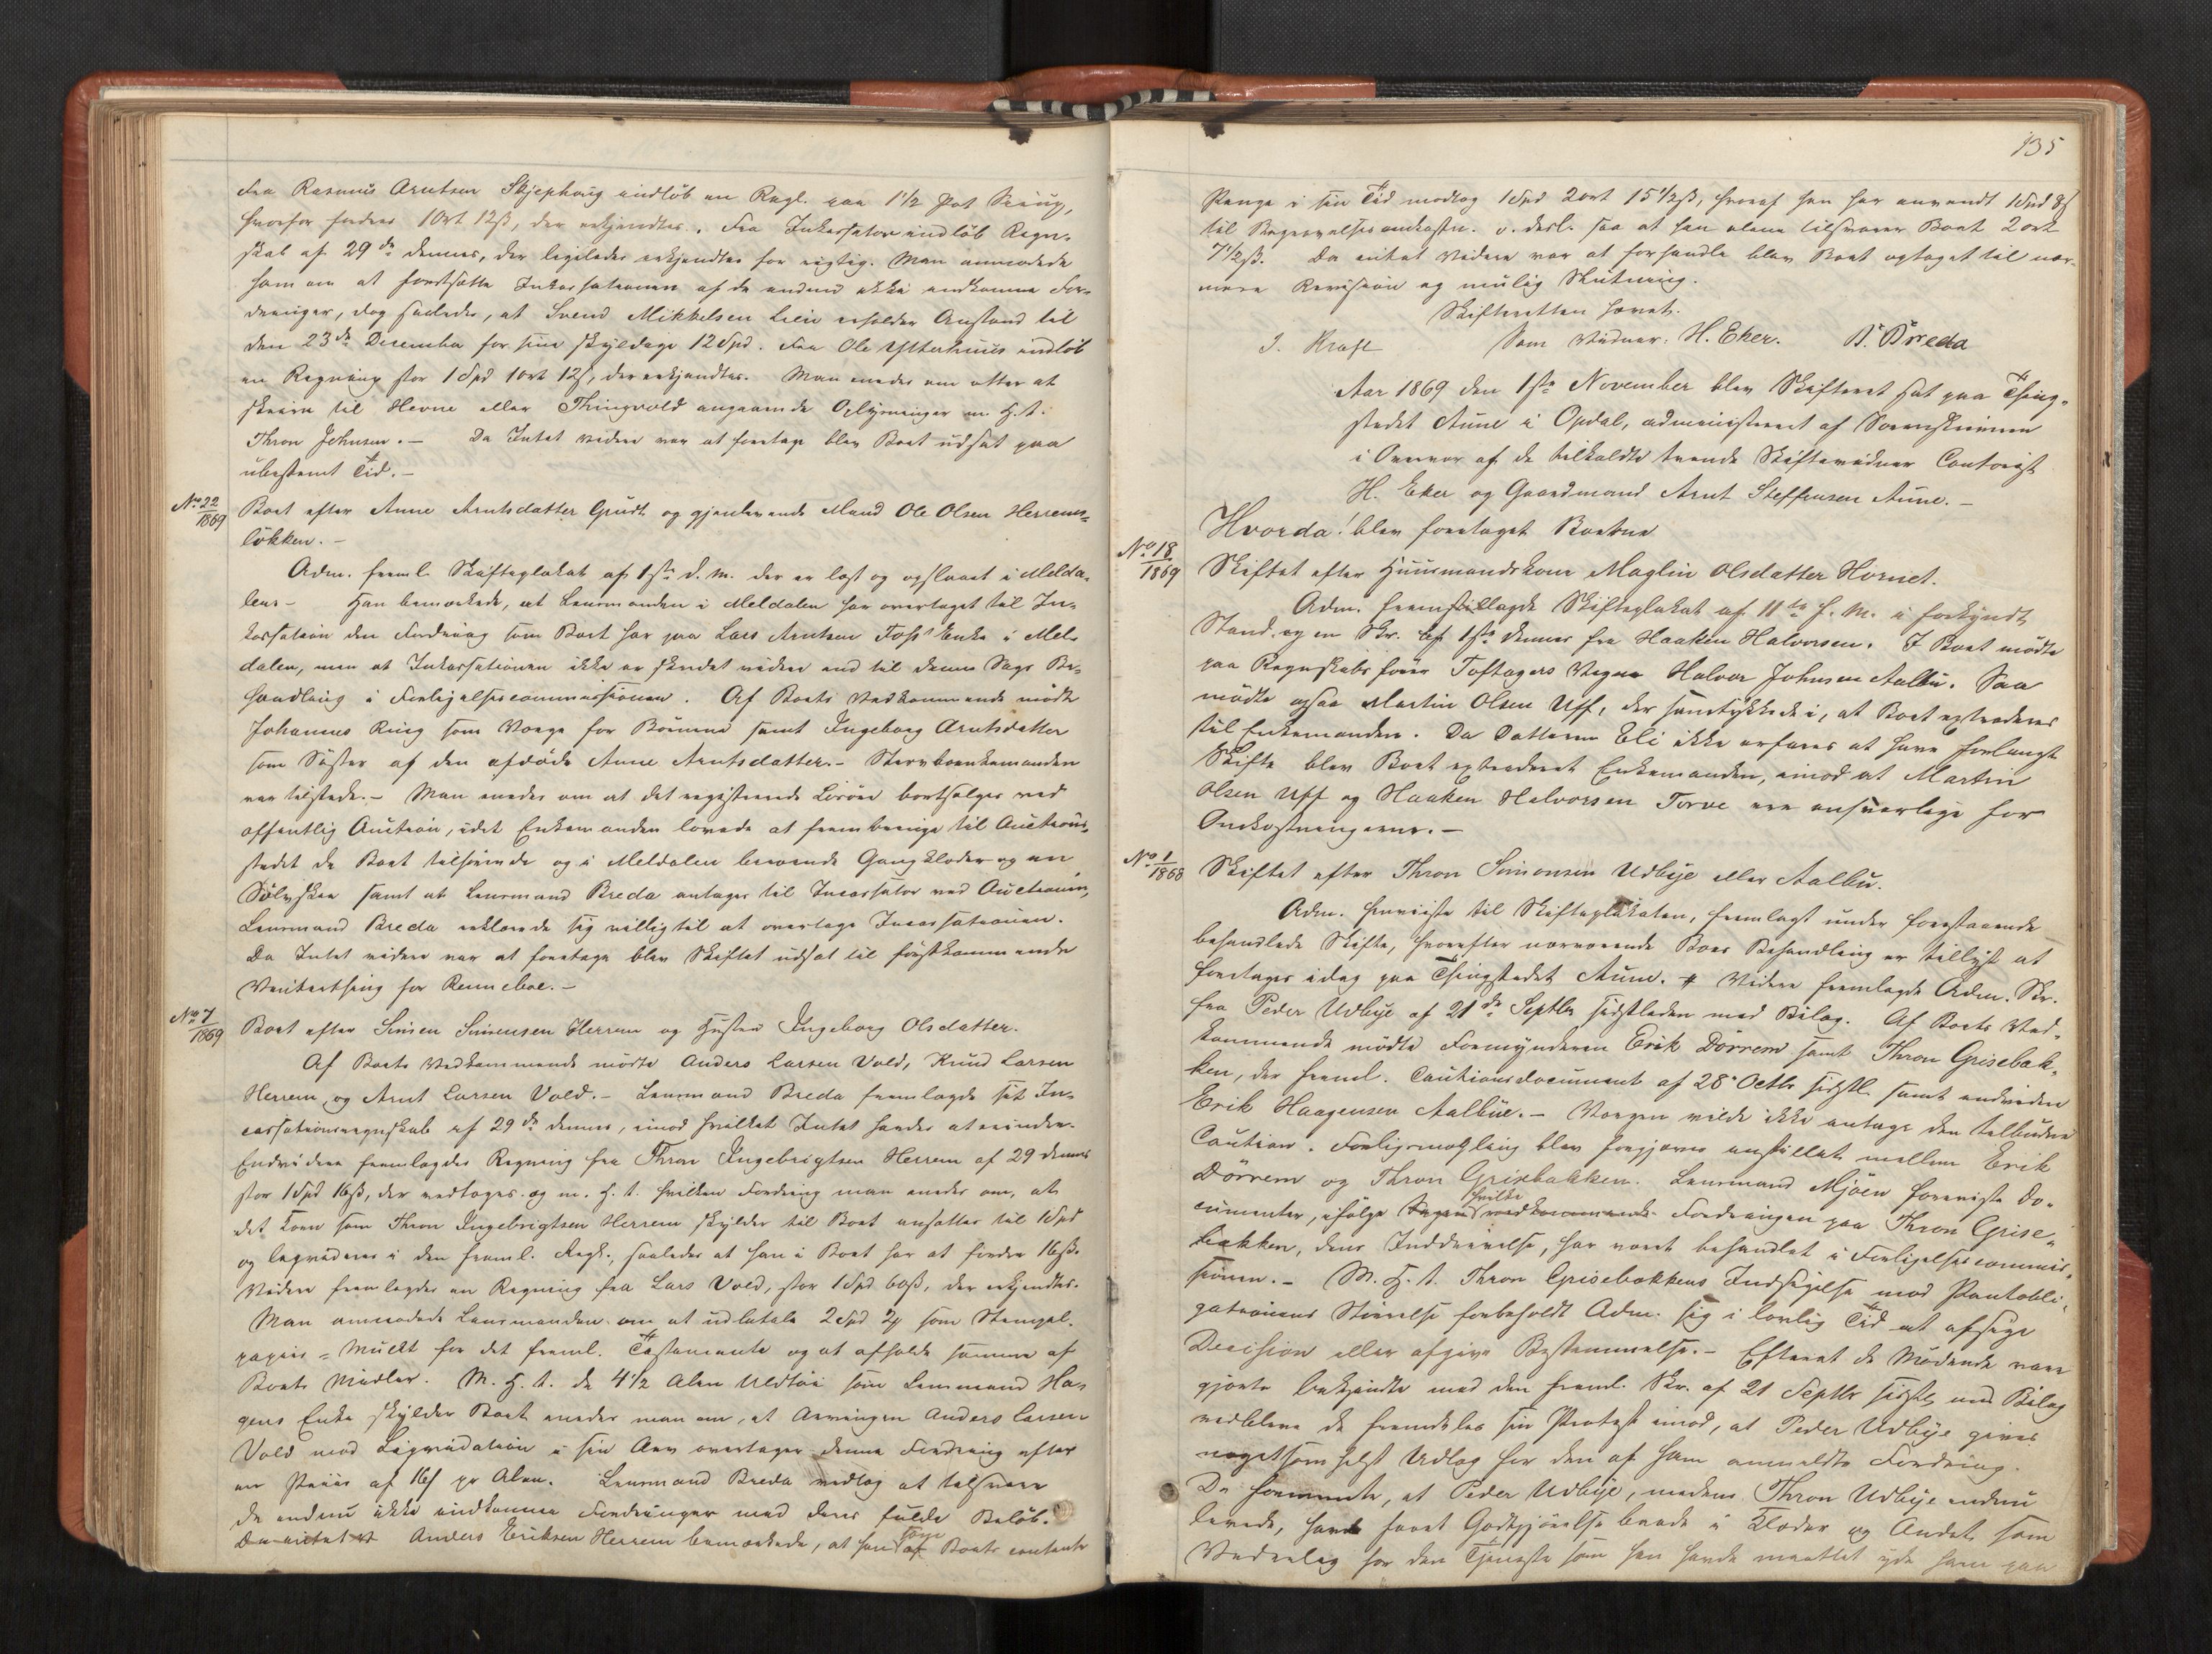 fra Rasmus Arntsen Skjephaug indløb en Regl. paa 1½ Pot Sirup,
hvorfor fordres 1 Ort 12ß, der erkjendtes. Fra Inkassator indløb Regn-
skab af 29de dennes, der ligeledes erkjendtes for rigtig. Man anmodede
ham om at fortsætte Inkassationen af de endnu ikke indkomne For-
dringer, dog saaledes, at Svend Mikkelsen Lien erholder Anstand til
den 23de December for sine skyldige 12 Spd. Fra Ole Ytterhuus indløb
en Regning stor 1 Spd 1 ort 12ß, der erkjendtes. Man enedes om atter at
skrive til Hevne eller Thingvold angaaende Oplysninger m. H. t.
Thron Johnsen. – Da Intet videre var at foretage blev Boet udsat paa
ubestemt Tid. –
No 22/1869 Boet efter Anne Arntsdatter Grudt og gjenlevende Mand Ole Olsen Herrems-
løkken. –
Adm. freml. Skifteplakat af 1ste d. M. der er læst og opslaaet i Melda-
len – Han bemærkede, at Lensmanden i Meldalen har overtaget til In-
kassation den Fordring som Boet har paa Lars Arntsen Foss' Enke i Mel-
dalen, men at Inkassationen ikke er skredet videre end til denne Sags Be-
handling i Forligelsescommissionen. Af Boets Vedkommende mødte
Johannes Ring som Værge for Børnene samt Ingeborg Arntsdatter
som Søster af den afdøde Anne Arntsdatter. – Stervboenkemanden
var tilstede. – Man enedes om at det registrerede Løsøre bortsælges ved
offentlig Auction, idet Enkemanden lovede at frembringe til Auctions-
stedet de Boet tilhørende og i Meldalen beroende Gangklæder og en
Sølvskee samt at Lensmand Breda antages til Incassator ved Auctionen,
Lensmand Breda erklærede sig villig til at overtage Incassationen.
Da Intet videre var at foretage blev Skiftet udsat til førstkommende
Vinterthing for Renneboe. –
No 7/1869 Boet efter Simen Simensen Herrem og Hustru Ingeborg Olsdatter.
Af Boets Vedkommende mødte Anders Larsen Vold, Knud Larsen
Herrem, og Arnt Larsen Vold. – Lensmand Breda fremlagde sit In-
cassationsregnskab af 29de dennes, imod hvilket Intet havdes at erindre.
Endvidere fremlagdes Regning fra Thron Ingebrigtsen Herrem af 29 dennes
stor 1 Spd 16ß, der vedtoges. og m. H. t. hvilken Fordring man enedes om, at
det Korn som Thron Ingebrigtsen Herrem skylder til Boet ansættes til 1 Spd
og liqvideres i den freml. Regk., saaledes at han i Boet har at fordre 16ß.
Videre fremlagdes en Regning fra Lars Vold, stor 1 Spd 60ß, der erkjendtes.
Man anmodede Lensmanden om at udbetale 2 Spd 2ß som Stempel-
papirs-Mulkt for det freml. Testamente og at afholde samme af
Boets Midler. M. H. t. de 4½ Alen Uldtøi som Lensmand Ha-
gens Enke skylder Boet enedes man om, at Arvingen Anders Larsen
Vold mod Liqvidation i sin Arv overtager denne Fordring efter
en Priis af 16ß pr Alen. Lensmand Breda vedtog at tilsvare
de endnu ikke indkomne Fordringer med deres fulde Beløb.
Da intet v Anders Eriksen Herrem bemærkede, at han af Boets contante
135
Penge i sin Tid modtog 1 Spd 2 ort 15½ß, hvoraf han har anvendt 1 Spd 8ß
til Begravelsesomkostn. o. desl. saa at han alene tilsvarer Boet 2 ort
7½ß. Da intet videre var at forhandle blev Boet optaget til nær-
mere Revision og mulig Slutning.
Skifteretten hævet.
J. Kraft Som Vidner: H. Eker. B. Breda
Aar 1869 den 1ste November blev Skifteret sat paa Thing-
stedet Aune i Opdal, administreret af Sorenskriveren
i Overvær af de tilkaldte tvende Skiftevidner Contorist
H. Eker og Gaardmand Arnt Steffensen Aune. –
Hvorda! blev foretaget Boerne
No 18/1869 Skiftet efter Huusmandskone Maglin Olsdatter Hornet.
Adm. fremlagde Skifteplakat af 11te f. M. i forkyndt
Stand. og en Skr. af 1ste dennes fra Haaken Halvorsen. I Boet mødte
paa Regnskabsfører Toftagers Vegne Halvor Johnsen Aalbu. Saa
mødte ogsaa Martin Olsen Uff, der samtykkede i, at Boet extraderes
til Enkemanden. Da Datteren Eli ikke erfares at have forlangt
Skifte blev Boet extraderet Enkemanden, imod at Martin
Olsen Uff og Haaken Halvorsen Torve ere ansvarlige for
Omkostningerne. –
No 1/1868 Skiftet efter Thron Simonsen Udbye eller Aalbu.
Adm. henviiste til Skifteplakaten, fremlagt under foranstaaende
behandlede Skifte, hvorefter nærværende Boes Behandling er tillyst at
foretages idag paa Thingstedet Aune. Videre fremlagde Adm. Skr.
fra Peder Udbye af 21de Septbr sidstleden med Bilag. Af Boets Ved-
kommende mødte Formynderen Erik Dørrem samt Thron Grisebak-
ken, der freml. Cautionsdocument af 28 Octbr sidstl. samt endvidere
Erik Haagensen Aalbue. – Værgen vilde ikke antage den tilbudne
Caution. Forligsmægling blev forgjæves anstillet mellem Erik
Dørrem og Thron Grisebakken. Lensmand Mjøen foreviste Do-
cumenter, ifølge hvilke Fordringen paa Thron Grise-
bakken, dens Inddrivelse, har været behandlet i Forligelsescommis-
sionen. – M. H. t. Thron Grisebakkens Indsigelse mod Pantobli-
gationens Størrelse forbeholdt Adm. sig i lovlig Tid at afsige
Decision eller afgive Bestemmelse. – Efterat de Mødende vare
gjorte bekjendte med den freml. Skr. af 21 Septbr sidstl. med Bilag
vedbleve de fremdeles sin Protest imod, at Peder Udbye gives
nogetsomhelst Udlæg for den af ham anmeldte Fordring.
De formeente, at Peder Udbye, medens Thron Udbye endnu
levede, havde faaet Godtgjørelse baade i Klæder og Andet som
Vederlag for den Tjeneste som han havde maattet yde ham paa